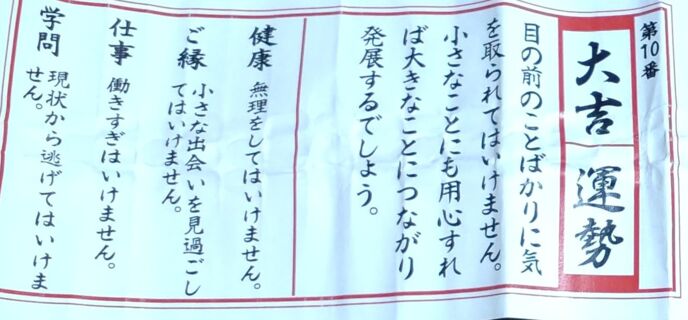 第10番
大吉
運勢
目の前のことばかりに気
を取られてはいけません。
小さなことにも用心すれ
ば大きなことにつながり
発展するでしょう。
健康 無理をしてはいけません。
ご縁 小さな出会いを見過ごし
てはいけません。
仕事 働きすぎはいけません。
学問 現状から逃げてはいけま
せん。